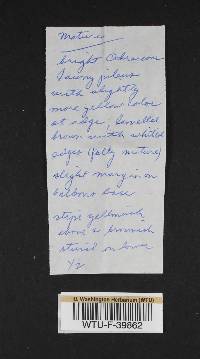 Mature
bright Ochraceous
Tawny pileus
with slightly
more yellow color
at edge, Lamellae
brown with whitish
edges (fully mature)
slight margin on
bulbous base
stipe yellowish
above & brownish
on lower
1/2
U. Washington Herbarium (WTU)
WTU-F-39862